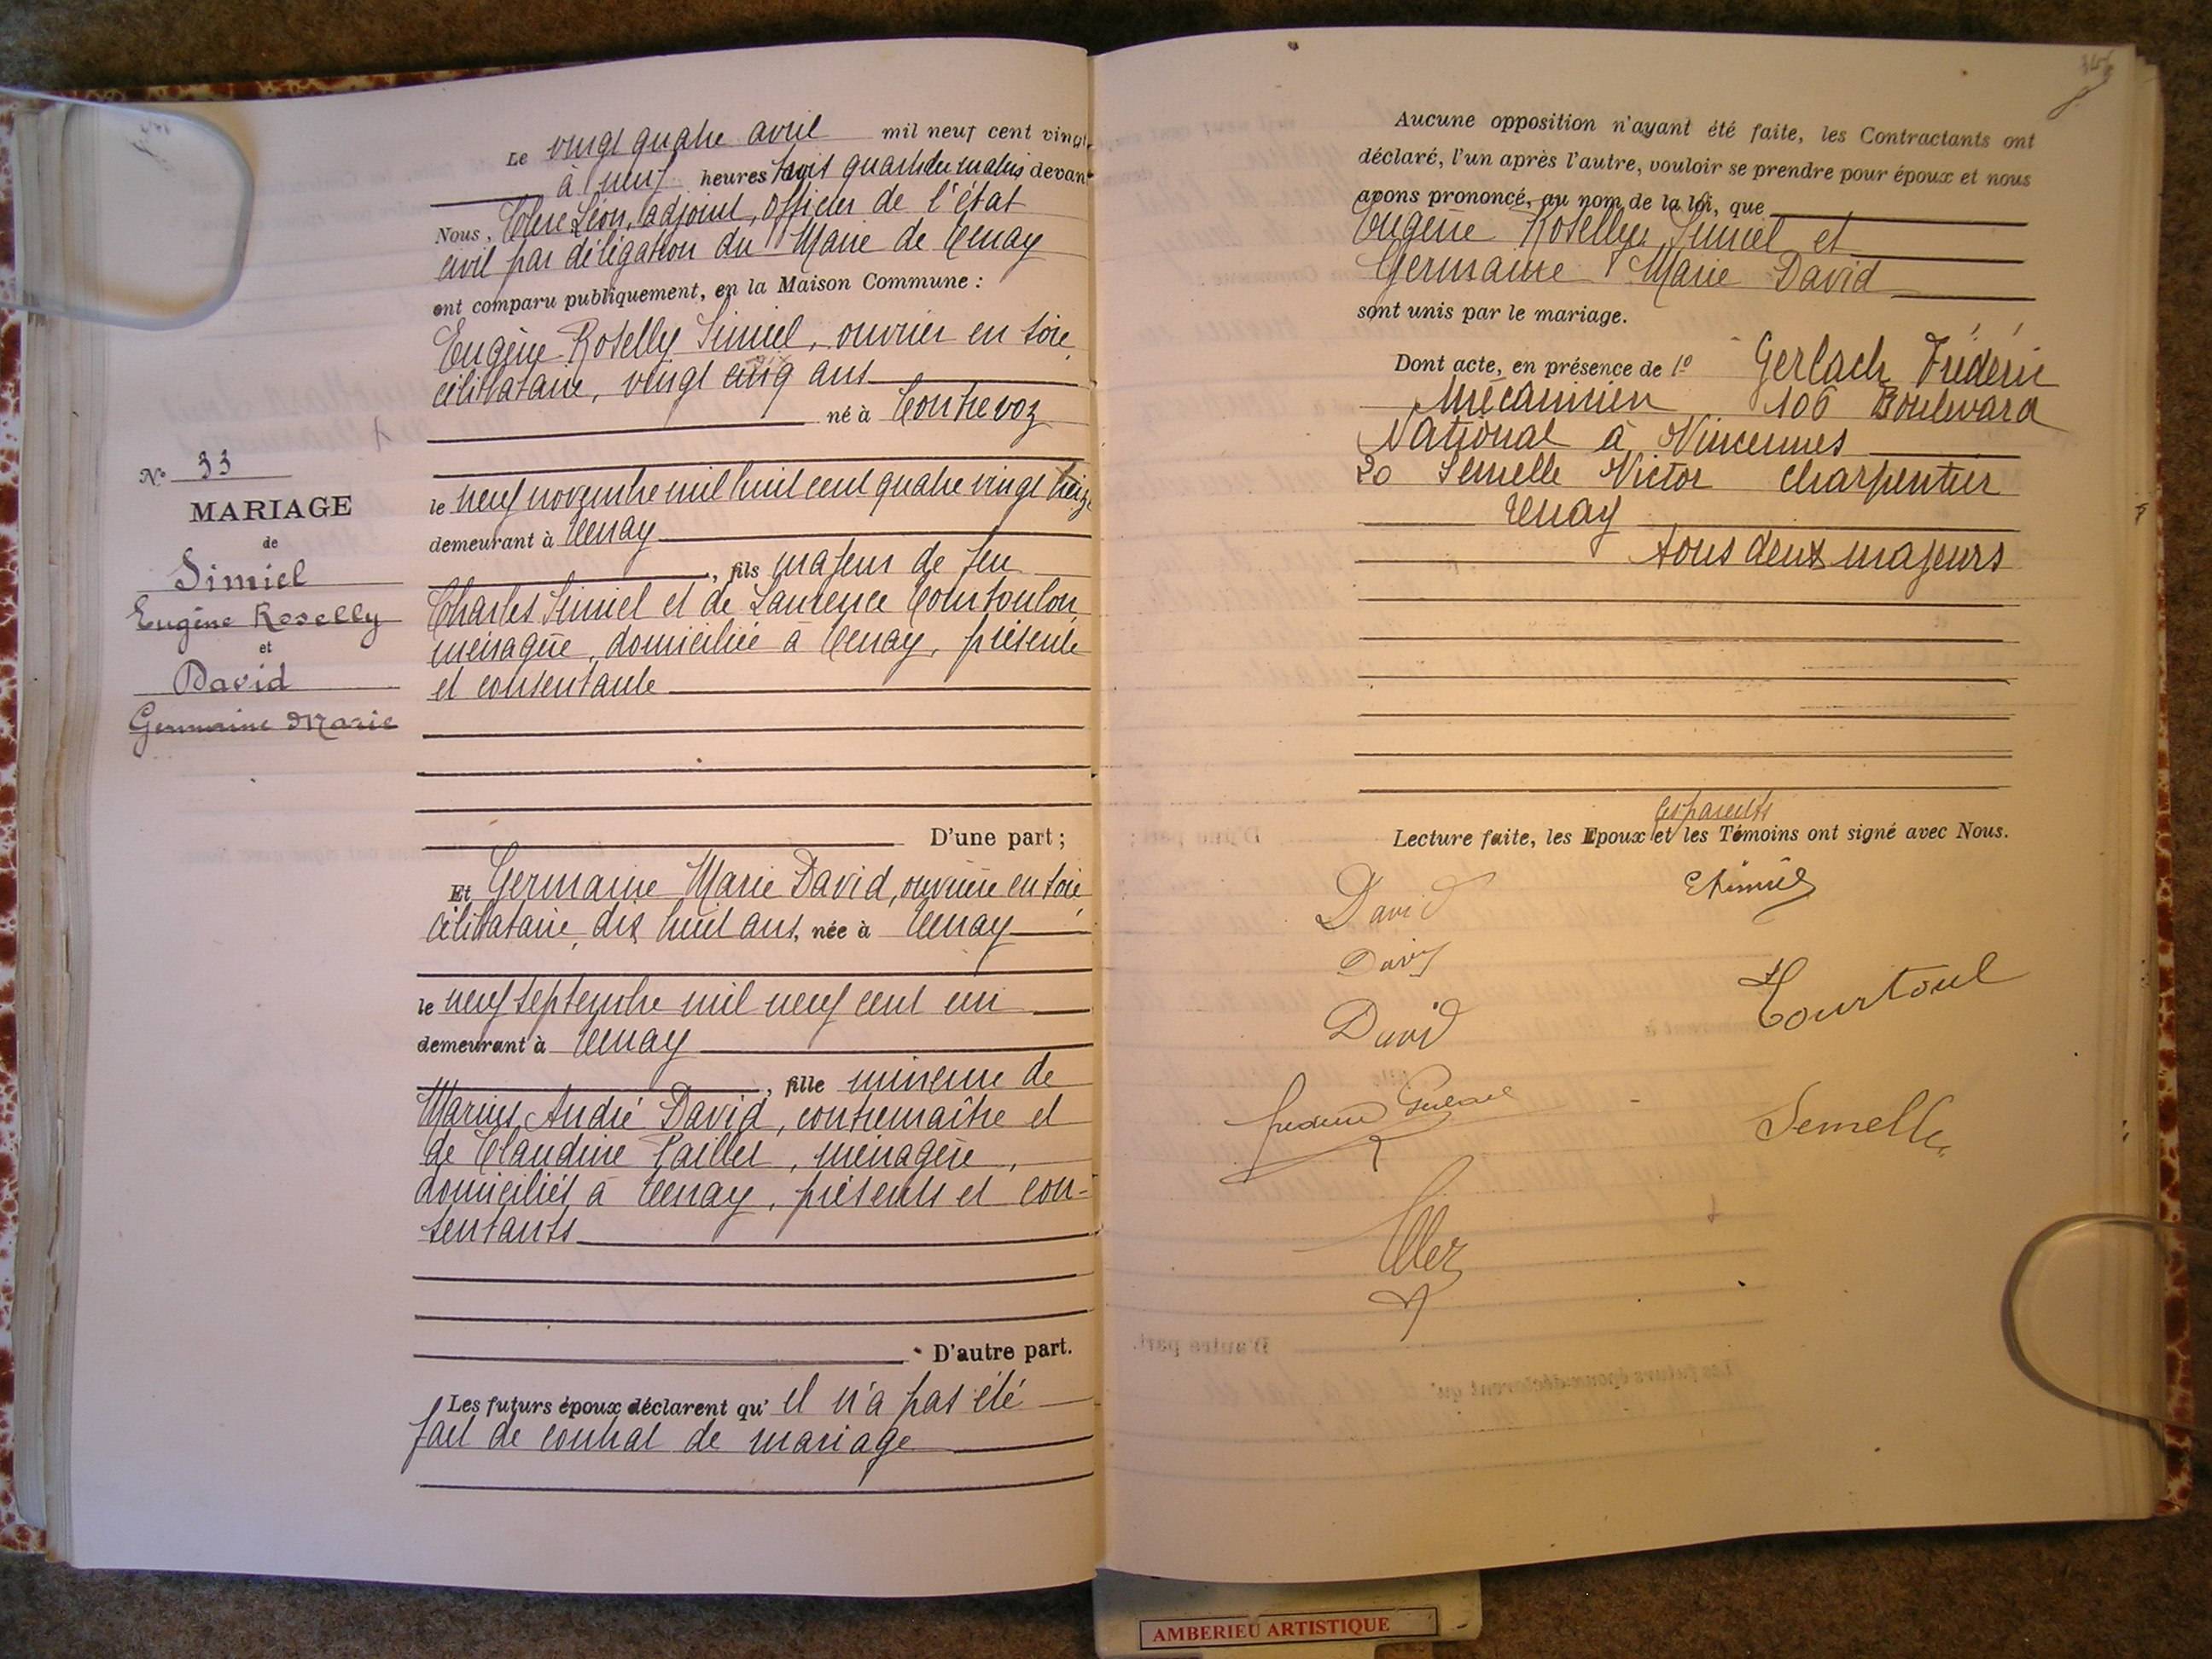 Le vingt quatre avril mil neuf cent vingt
à neuf heures trois quarts du matin devant
Nous, Clerc Léon, adjoint, officier de l'état
civil par délégation du Maire de Tenay
ont comparu publiquement, en la Maison Commune :
Eugène Roselly Simiel, ouvrier en soie
célibataire, vingt ans
né à Contrevoz
le neuf novembre mil huit cent quatre vingt treize
demeurant à Tenay
, fils majeur de feu
Charles Simiel et de Laurence
ménagère, domiciliée à Tenay, présente
et consentante
D'une part ;
Et Germaine Marie David, ouvrière en soie
célibataire, dix huit ans, née à Tenay
le neuf septembre mil neuf cent un
demeurant à Tenay
, fille mineure de
Marius André David, contremaître et
de Claudine Paillet, ménagère,
domiciliés à Tenay, présents et con-
sentants
D'autre part.
Les futurs époux déclarent qu' il n'a pas été
fait de contrat de mariage
No 33
MARIAGE
de
Simiel
Eugène Roselly
et
David
Germaine Marie
Aucune opposition n'ayant été faite, les Contractants ont
déclaré, l'un après l'autre, vouloir se prendre pour époux et nous
avons prononcé, au nom de la loi, que
Eugène Roselly Simiel et
Germaine Marie David
sont unis par le mariage.
Dont acte, en présence de 1o Gerlach Frédéric
Mécanicien 106 Boulevard
National à Vincennes
2o Semelle Victor charpentier
Tenay
tous deux majeurs
les parents
Lecture faite, les Epoux et les Témoins ont signé avec Nous.
David
David
Courtoul
David
Semelle
AMBERIEU ARTISTIQUE